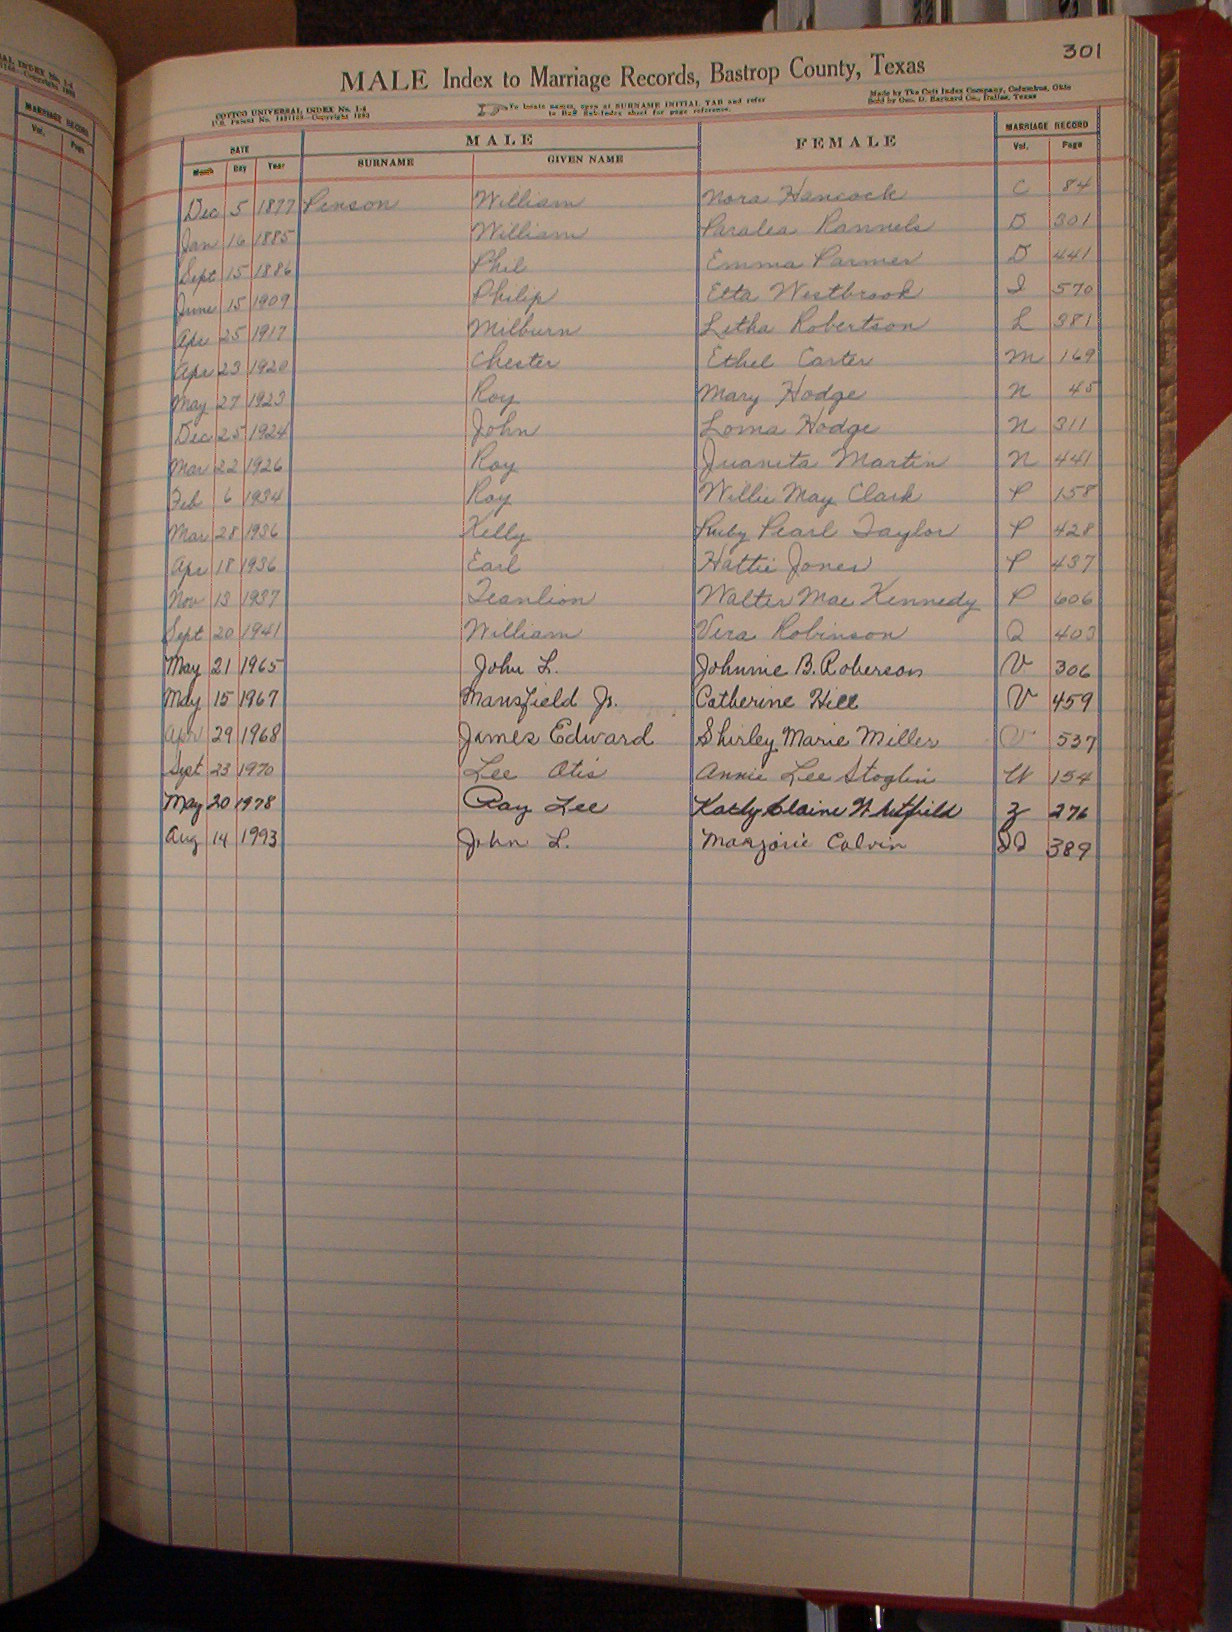 301
MALE Index to Marriage Records, Bastrop County, Texas
COTTCO UNIVERSAL INDEX No. 1-4
To locate names, open at SURNAME INITIAL TAB and refer
to Sub-Index sheet for page reference.
Made by The Cott Index Company, Columbus, Ohio
Sold by Geo. D. Barnard Co., Dallas, Texas
DATE MALE FEMALE MARRIAGE RECORD
Month Day Year SURNAME GIVEN NAME Vol. Page
Dec 5 1877 Penson William Nora Hancock C 84
Jan 16 1885 William Paralea Rannels D 301
Sept 15 1886 Phil Emma Parmer D 441
June 15 1909 Philip Etta Westbrook I 570
Apr 25 1917 Milburn Letha Robertson L 381
Apr 23 1920 Chester Ethel Carter M 169
May 27 1923 Roy Mary Hodge N 45
Dec 25 1924 John Loma Hodge N 311
Mar 22 1926 Roy Juanita Martin N 441
Feb 6 1934 Roy Willie May Clark P 158
Mar 28 1936 Kelly Ruby Pearl Taylor P 428
Apr 18 1936 Earl Hattie Jones P 437
Nov 13 1937 Teanlion Walter Mae Kennedy P 606
Sept 20 1941 William Vera Robinson Q 403
May 21 1965 John L. Johnnie B. Roberson V 306
May 15 1967 Mansfield Jr. Catherine Hill V 459
Apr 29 1968 James Edward Shirley Marie Miller V 537
Sept 23 1970 Lee Otis Annie Lee Stoglin W 154
May 20 1978 Ray Lee Kathy Elaine Whitfield Z 276
Aug 14 1993 John L. Marjorie Calvin 389
MARRIAGE RECORD
Vol. Page